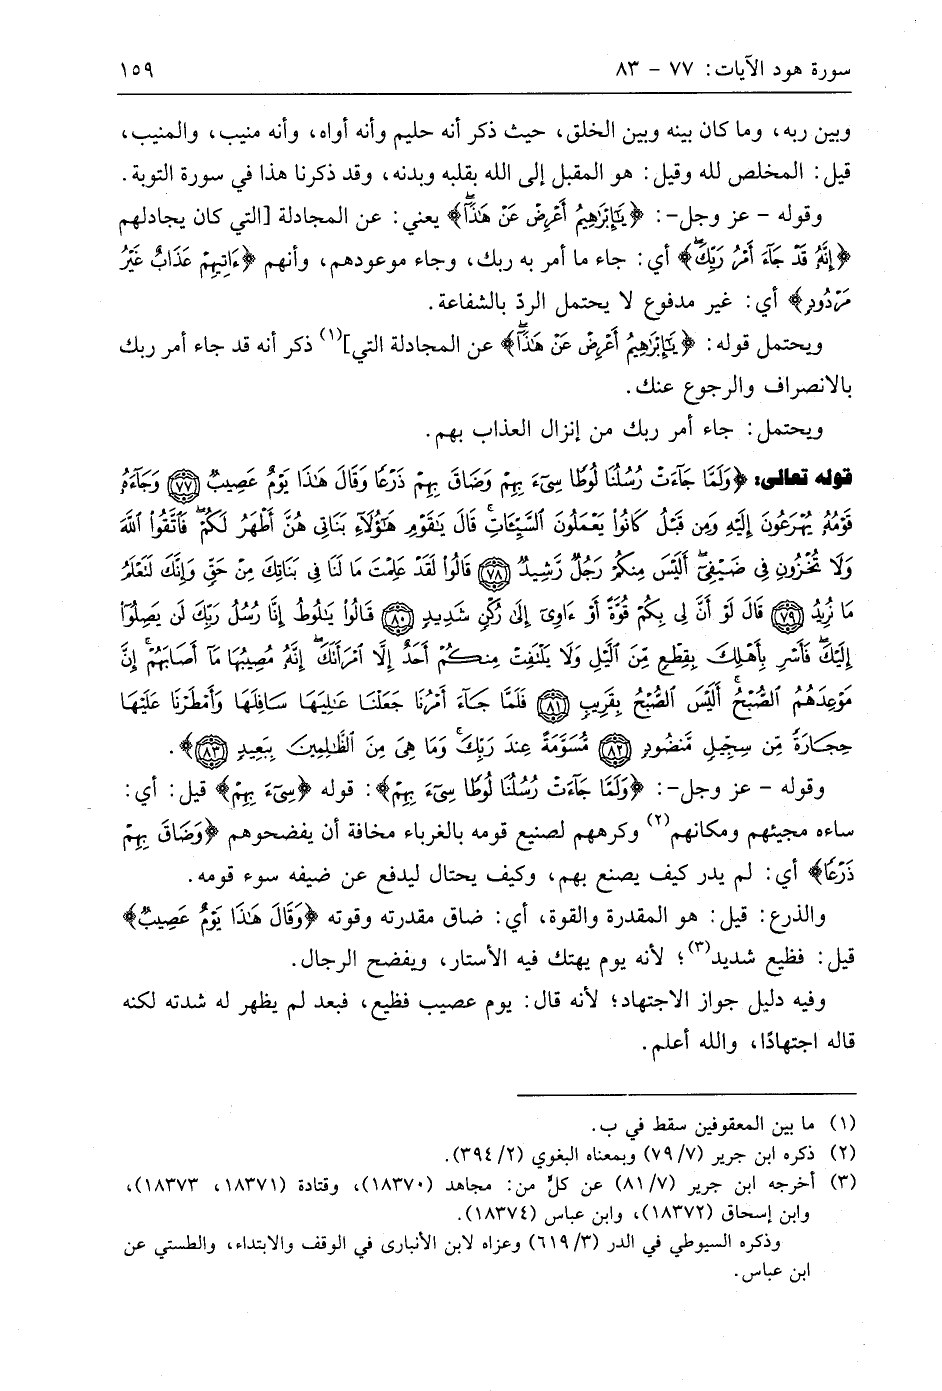 سورة هود الآيات: ٧٧ - ٨٣ ١٥٩
وبين ربه، وما كان بينه وبين الخلق، حيث ذكر أنه حليم وأنه أواه، وأنه منيب، والمنيب،
قيل: المخلص لله وقيل: هو المقبل إلى الله بقلبه وبدنه، وقد ذكرنا هذا في سورة التوبة.
وقوله - عز وجل-: ﴿يَٰٓإِبْرَٰهِيمُ أَعْرِضْ عَنْ هَٰذَآۖ﴾ يعني: عن المجادلة [التي كان يجادلهم
﴿إِنَّهُۥ قَدْ جَآءَ أَمْرُ رَبِّكَۖ﴾ أي: جاء ما أمر به ربك، وجاء موعودهم، وأنهم ﴿ءَاتِيهِمْ عَذَابٌ غَيْرُ
مَرْدُودٍ﴾ أي: غير مدفوع لا يحتمل الردّ بالشفاعة.
ويحتمل قوله: ﴿يَٰٓإِبْرَٰهِيمُ أَعْرِضْ عَنْ هَٰذَآۖ﴾ عن المجادلة التي](١) ذكر أنه قد جاء أمر ربك
بالانصراف والرجوع عنك.
ويحتمل: جاء أمر ربك من إنزال العذاب بهم.
قوله تعالى: ﴿وَلَمَّا جَآءَتْ رُسُلُنَا لُوطًا سِىٓءَ بِهِمْ وَضَاقَ بِهِمْ ذَرْعًا وَقَالَ هَٰذَا يَوْمٌ عَصِيبٌ ٧٧ وَجَآءَهُۥ
قَوْمُهُۥ يُهْرَعُونَ إِلَيْهِ وَمِن قَبْلُ كَانُوا۟ يَعْمَلُونَ ٱلسَّيِّـَٔاتِۚ قَالَ يَٰقَوْمِ هَٰٓؤُلَآءِ بَنَاتِى هُنَّ أَطْهَرُ لَكُمْۖ فَٱتَّقُوا۟ ٱللَّهَ
وَلَا تُخْزُونِ فِى ضَيْفِىٓۖ أَلَيْسَ مِنكُمْ رَجُلٌ رَّشِيدٌ ٧٨ قَالُوا۟ لَقَدْ عَلِمْتَ مَا لَنَا فِى بَنَاتِكَ مِنْ حَقٍّ وَإِنَّكَ لَتَعْلَمُ
مَا نُرِيدُ ٧٩ قَالَ لَوْ أَنَّ لِى بِكُمْ قُوَّةً أَوْ ءَاوِىٓ إِلَىٰ رُكْنٍ شَدِيدٍ ٨٠ قَالُوا۟ يَٰلُوطُ إِنَّا رُسُلُ رَبِّكَ لَن يَصِلُوٓا۟
إِلَيْكَۖ فَأَسْرِ بِأَهْلِكَ بِقِطْعٍ مِّنَ ٱلَّيْلِ وَلَا يَلْتَفِتْ مِنكُمْ أَحَدٌ إِلَّا ٱمْرَأَتَكَۖ إِنَّهُۥ مُصِيبُهَا مَآ أَصَابَهُمْۚ إِنَّ
مَوْعِدَهُمُ ٱلصُّبْحُۚ أَلَيْسَ ٱلصُّبْحُ بِقَرِيبٍ ٨١ فَلَمَّا جَآءَ أَمْرُنَا جَعَلْنَا عَٰلِيَهَا سَافِلَهَا وَأَمْطَرْنَا عَلَيْهَا
حِجَارَةً مِّن سِجِّيلٍ مَّنضُودٍ ٨٢ مُّسَوَّمَةً عِندَ رَبِّكَۖ وَمَا هِىَ مِنَ ٱلظَّٰلِمِينَ بِبَعِيدٍ ٨٣﴾.
وقوله - عز وجل-: ﴿وَلَمَّا جَآءَتْ رُسُلُنَا لُوطًا سِىٓءَ بِهِمْ﴾: قوله ﴿سِىٓءَ بِهِمْ﴾ قيل: أي:
ساءه مجيئهم ومكانهم(٢) وكرههم لصنيع قومه بالغرباء مخافة أن يفضحوهم ﴿وَضَاقَ بِهِمْ
ذَرْعًا﴾ أي: لم يدر كيف يصنع بهم، وكيف يحتال ليدفع عن ضيفه سوء قومه.
والذرع: قيل: هو المقدرة والقوة، أي: ضاق مقدرته وقوته ﴿وَقَالَ هَٰذَا يَوْمٌ عَصِيبٌ﴾
قيل: فظيع شديد(٣)؛ لأنه يوم يهتك فيه الأستار، ويفضح الرجال.
وفيه دليل جواز الاجتهاد؛ لأنه قال: يوم عصيب فظيع، فبعد لم يظهر له شدته لكنه
قاله اجتهادًا، والله أعلم.
(١) ما بين المعقوفين سقط في ب.
(٢) ذكره ابن جرير (٧/ ٧٩) وبمعناه البغوي (٢/ ٣٩٤).
(٣) أخرجه ابن جرير (٧/ ٨١) عن كلٍّ من: مجاهد (١٨٣٧٠)، وقتادة (١٨٣٧١، ١٨٣٧٣)،
وابن إسحاق (١٨٣٧٢)، وابن عباس (١٨٣٧٤).
وذكره السيوطي في الدر (٣/ ٦١٩) وعزاه لابن الأنبارى في الوقف والابتداء، والطستي عن
ابن عباس.